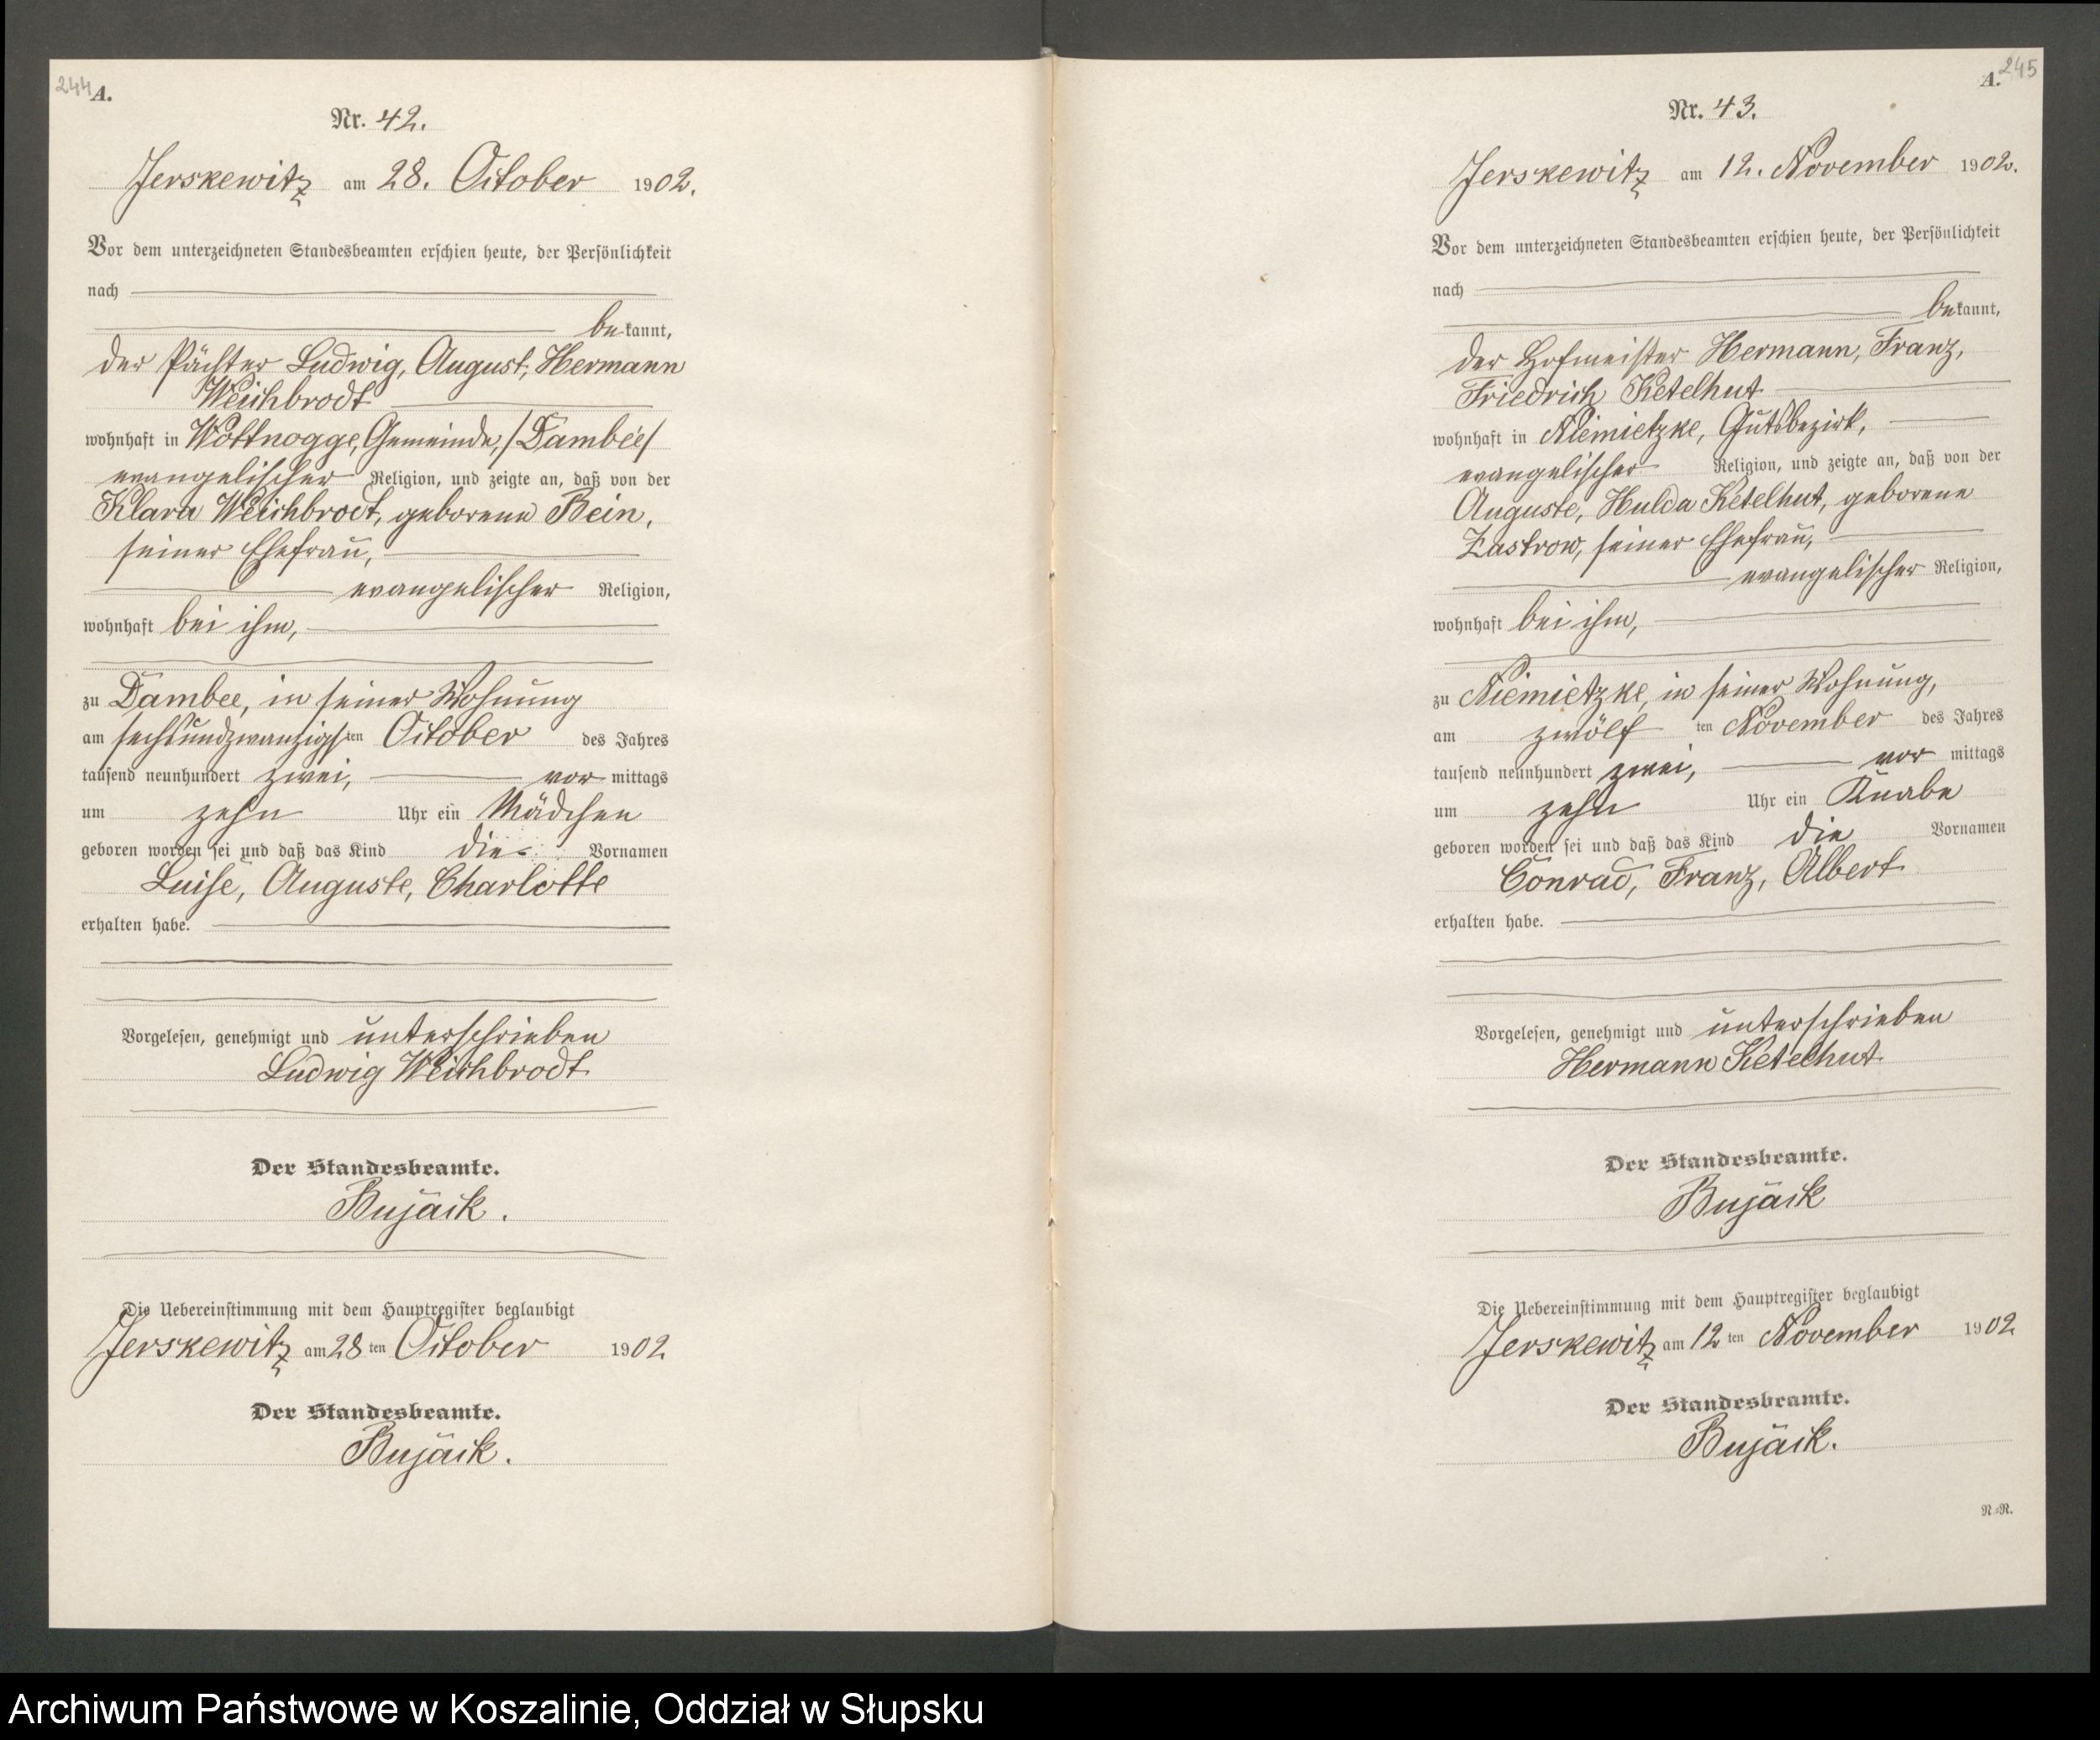 244 A.
Nr. 42.
Jerskewitz am 28. October 1902.
Vor dem unterzeichneten Standesbeamten erschien heute, der Persönlichkeit
nach
bekannt,
der Pächter Ludwig, August, Hermann
Weichbrodt
wohnhaft in Wottnogge, Gemeinde, /Dambee/
evangelischer Religion, und zeigte an, daß von der
Klara Weichbrodt, geborene Bein,
seiner Ehefrau,
evangelischer Religion,
wohnhaft bei ihm,
zu Dambee, in seiner Wohnung
am sechsundzwanzigsten October des Jahres
tausend neunhundert zwei, vor mittags
um zehn Uhr ein Mädchen
geboren worden sei und daß das Kind die Vornamen
Luise, Auguste, Charlotte
erhalten habe.
Vorgelesen, genehmigt und unterschrieben
Ludwig Weichbrodt
Der Standesbeamte.
Bujack.
Die Uebereinstimmung mit dem Hauptregister beglaubigt
Jerskewitz am 28 ten October 1902
Der Standesbeamte.
Bujack.
A. 245
Nr. 43.
Jerskewitz am 12. November 1902.
Vor dem unterzeichneten Standesbeamten erschien heute, der Persönlichkeit
nach
bekannt,
der Hofmeister Hermann, Franz,
Friedrich Ketelhut
wohnhaft in Niemietzke, Gutsbezirk,
evangelischer Religion, und zeigte an, daß von der
Auguste, Hulda Ketelhut, geborene
Zastrow, seiner Ehefrau,
evangelischer Religion,
wohnhaft bei ihm,
zu Niemietzke, in seiner Wohnung,
am zwölf ten November des Jahres
tausend neunhundert zwei, vor mittags
um zehn Uhr ein Knabe
geboren worden sei und daß das Kind die Vornamen
Conrad, Franz, Albert
erhalten habe.
Vorgelesen, genehmigt und unterschrieben
Hermann Ketelhut
Der Standesbeamte.
Bujack
Die Uebereinstimmung mit dem Hauptregister beglaubigt
Jerskewitz am 12 ten November 1902
Der Standesbeamte.
Bujack.
N=R.
Archiwum Państwowe w Koszalinie, Oddział w Słupsku